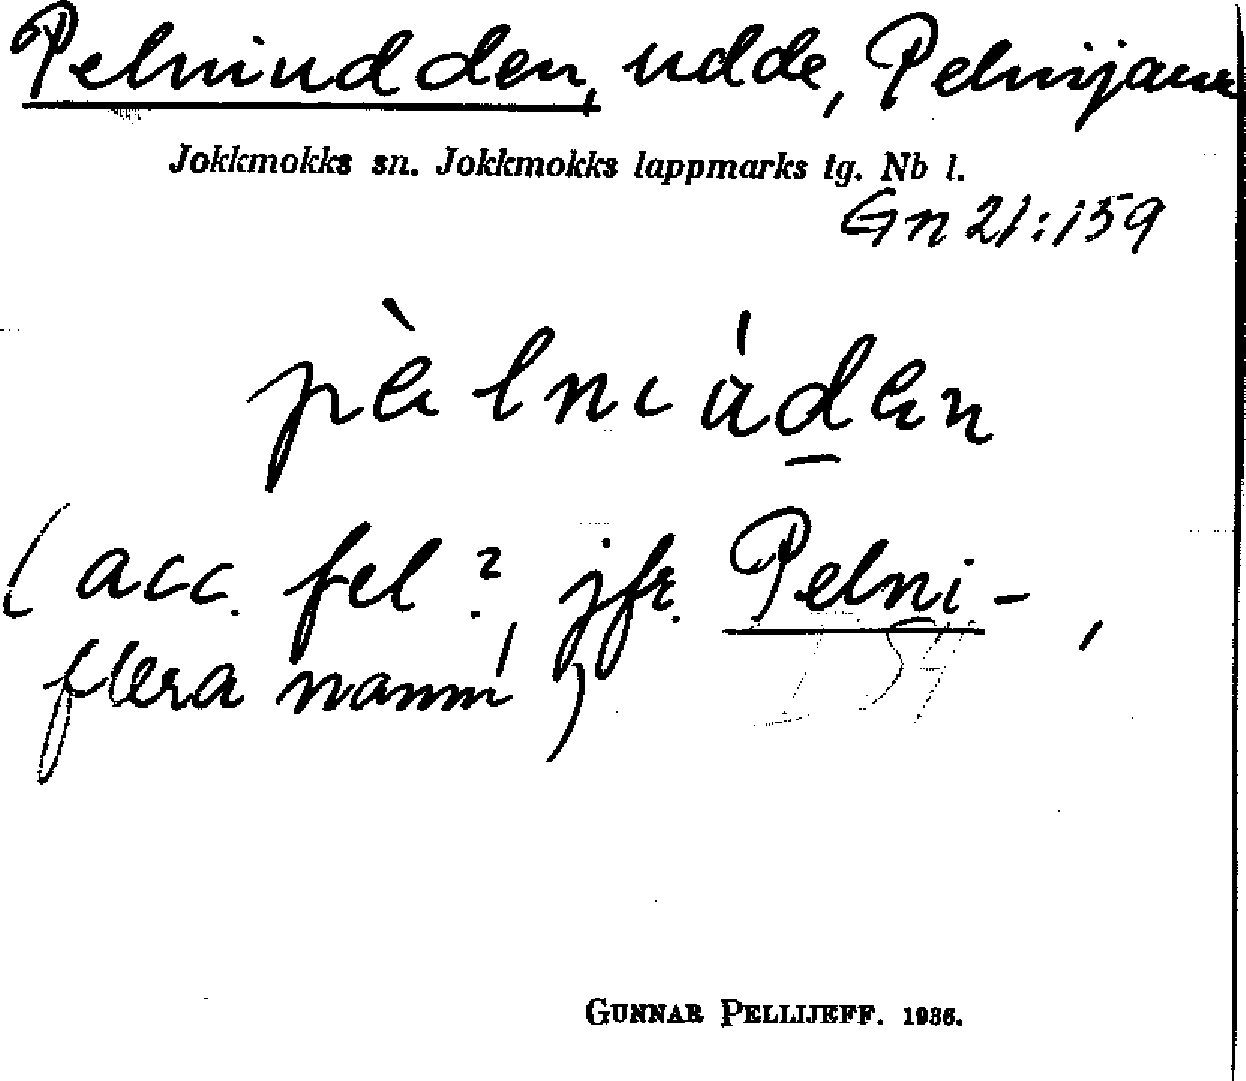 Pelniudden, udde, Pelnijaur
Jokkmokks sn. Jokkmokks lappmarks tg. Nb l.
Gn 21:159
pèlniúden
(acc. fel?, jfr. Pelni-,
flera namn!)
GUNNAR PELLIJEFF. 1936.